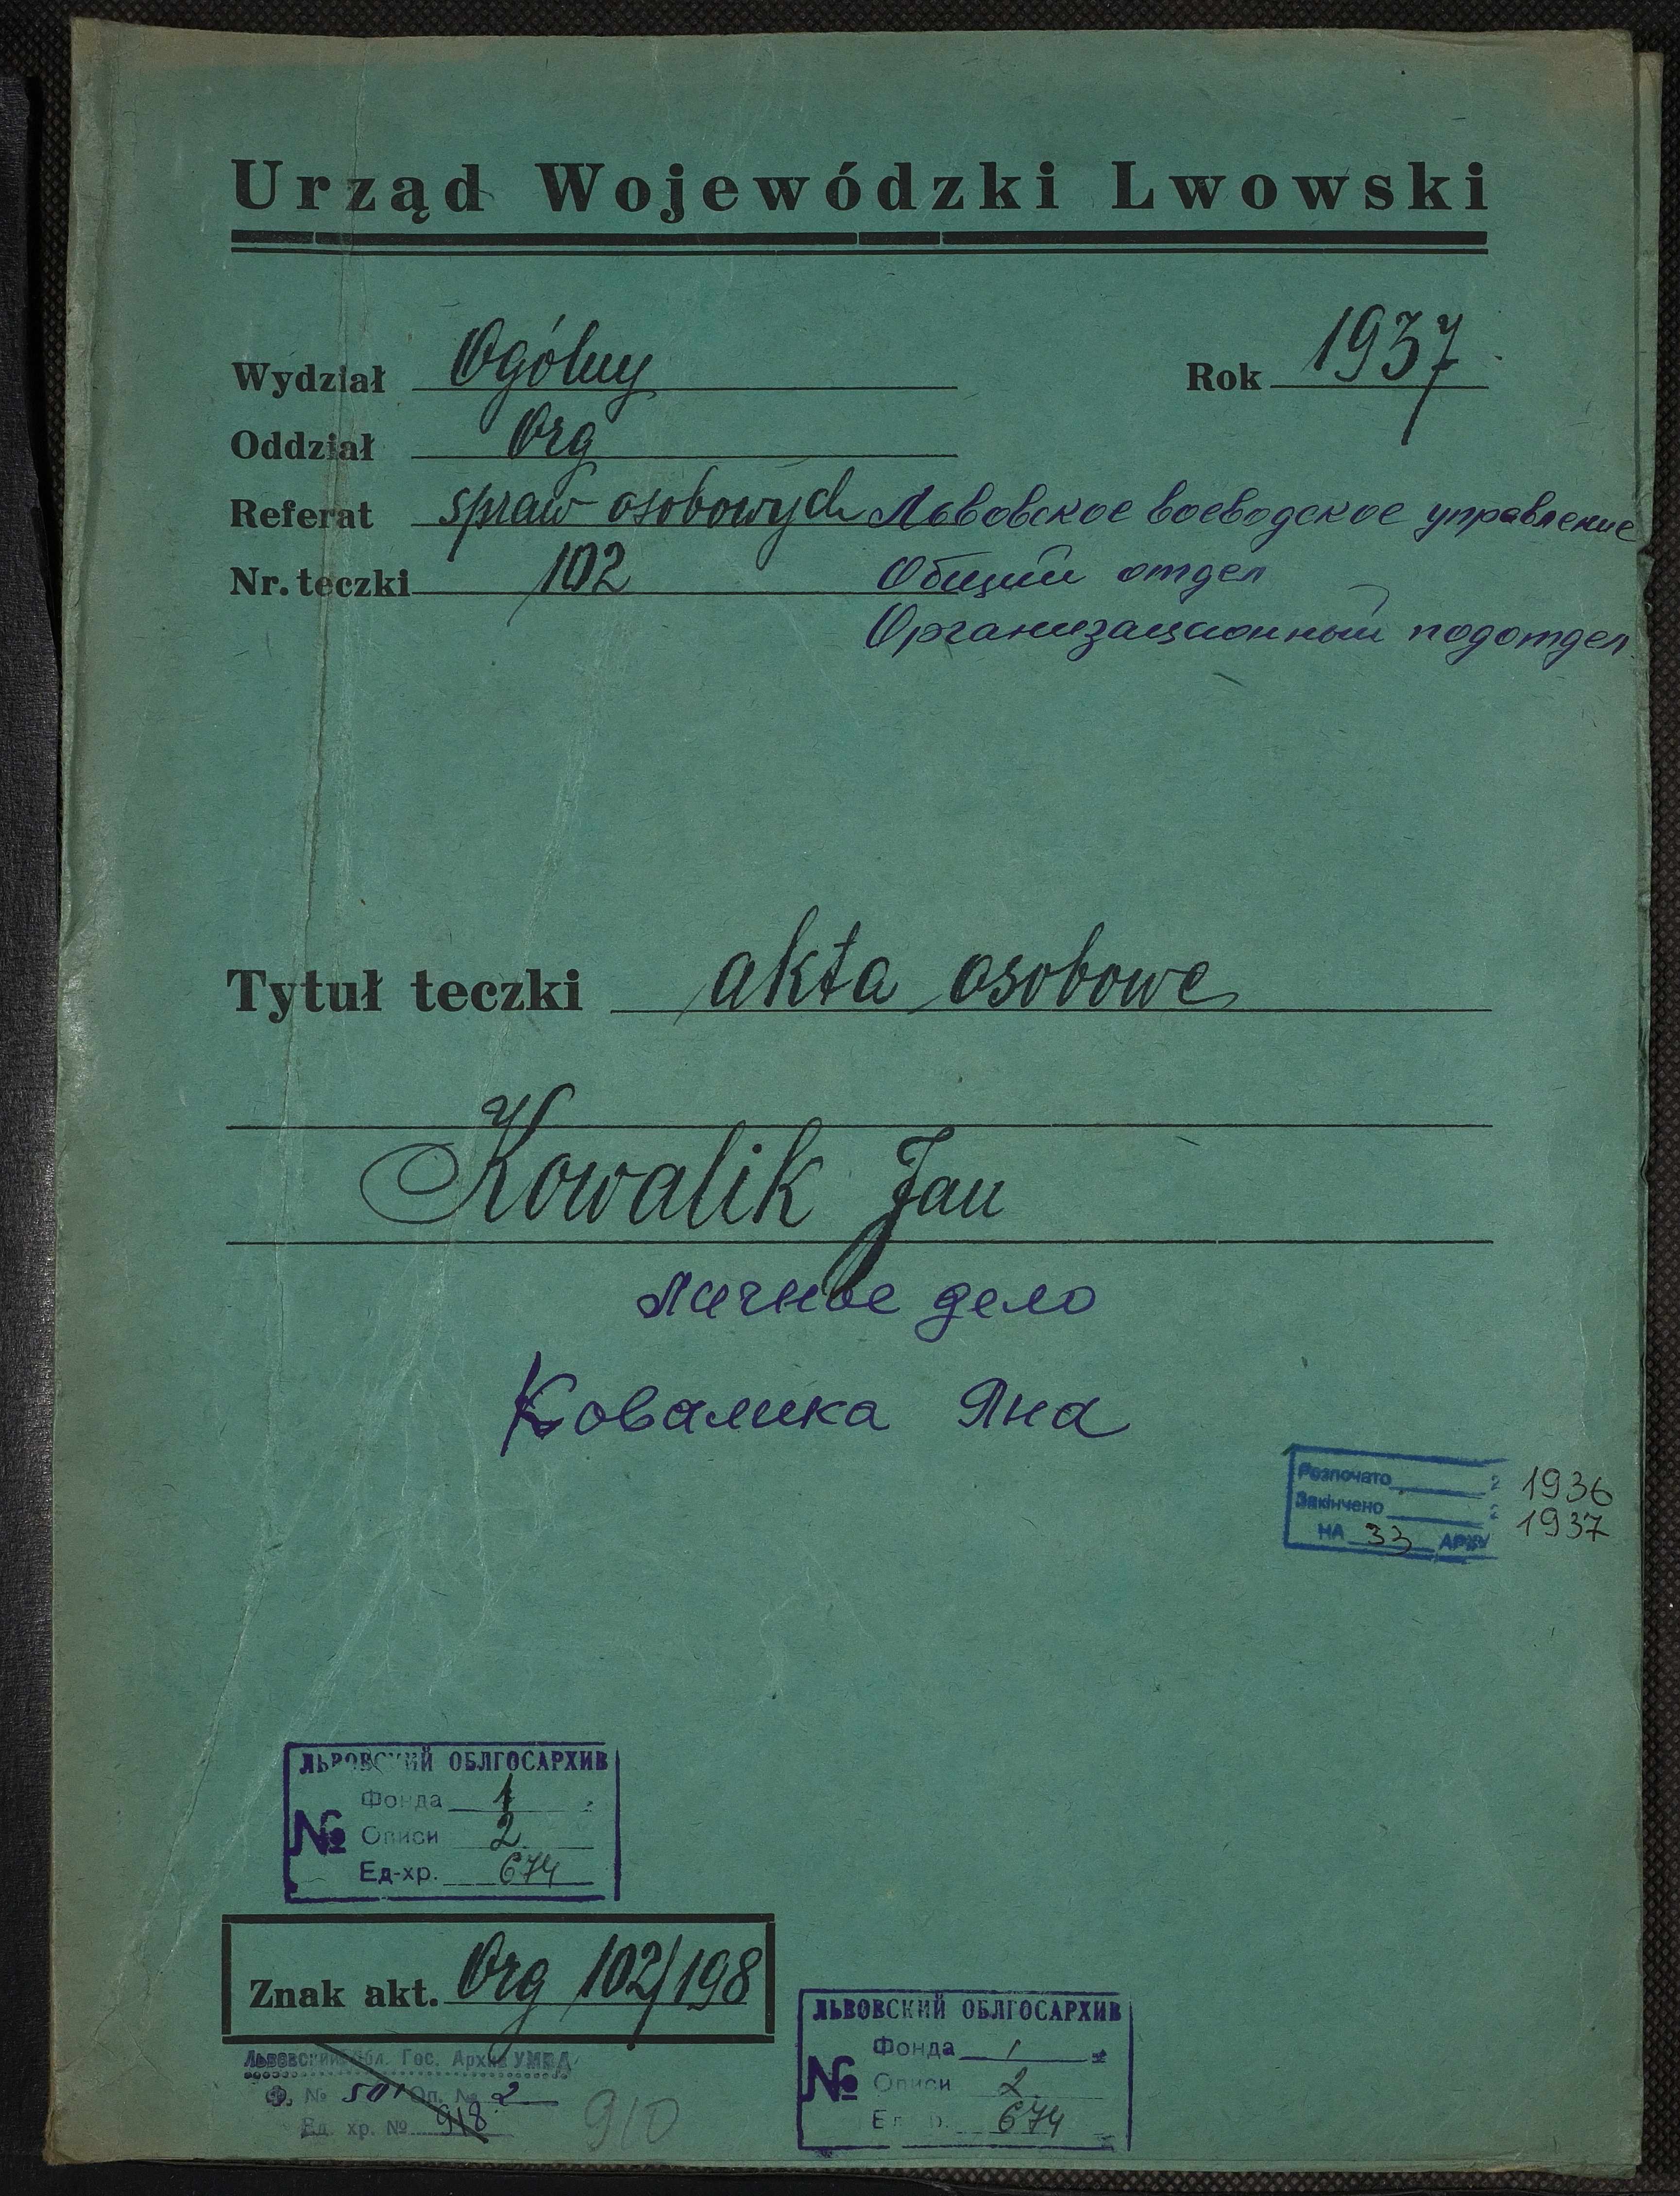 Urząd Wojewódzki Lwowski
Wydział Ogólny Rok 1937
Oddział Org
Referat spraw osobowych Львовское воеводское управление
Nr. teczki 102 Общий отдел
Организационный подотдел
Tytuł teczki akta osobowe
Kowalik Jan
Личное дело
Ковалика Яна
Розпочато 1936
Закінчено 1937
НА 33 АРК
ЛЬВОВСКИЙ ОБЛГОСАРХИВ
Фонда 1
№ Описи 2
Ед-хр. 674
Znak akt. Org 102/198
ЛЬВОВСКИЙ ОБЛГОСАРХИВ
Фонда 1
№ Описи 2
Ед-хр. 674
Львовский Обл. Гос. Архив УМВД
Ф. № 501 Оп. № 2
Ед. хр. № 918
910